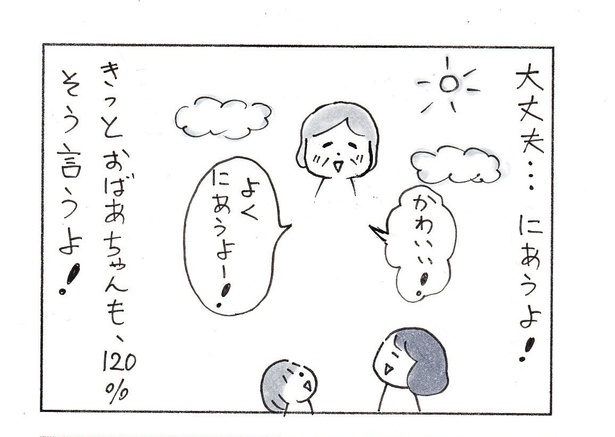 大丈夫… にあうよ!
かわいい!
よく
にあうよー!
きっとおばあちゃんも、120%
そう言うよ!